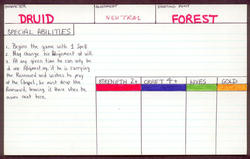 CHARACTER ALIGNMENT STARTING POINT
DRUID NEUTRAL FOREST
SPECIAL ABILITIES
1. Begins the game with 1 Spell
2. May change his Alignment at will.
3. At any given time he can only be
of one Alignment, if he is carrying
the Runesword and wishes to pray
at the Chapel, he must drop the
Runesword, leaving it there when he
moves next turn.
STRENGTH 2+ CRAFT 4+ LIVES GOLD